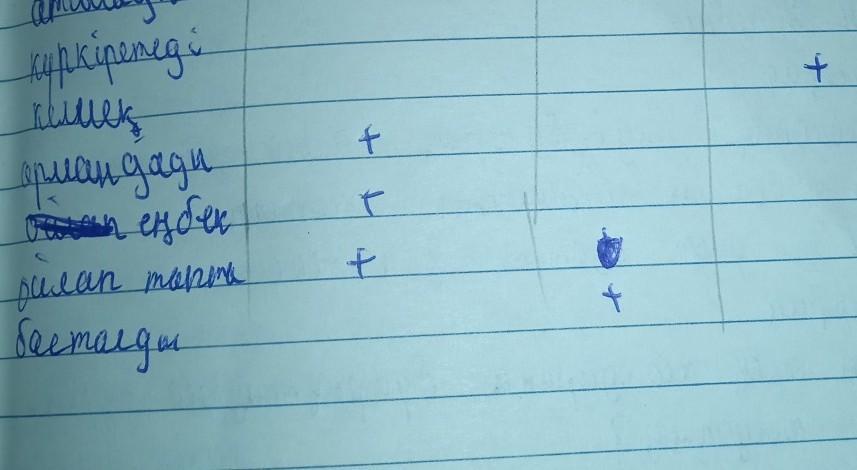 күркіретеді
+
көшек
армандады +
еңбек +
ойлап тапты +
+
басталды